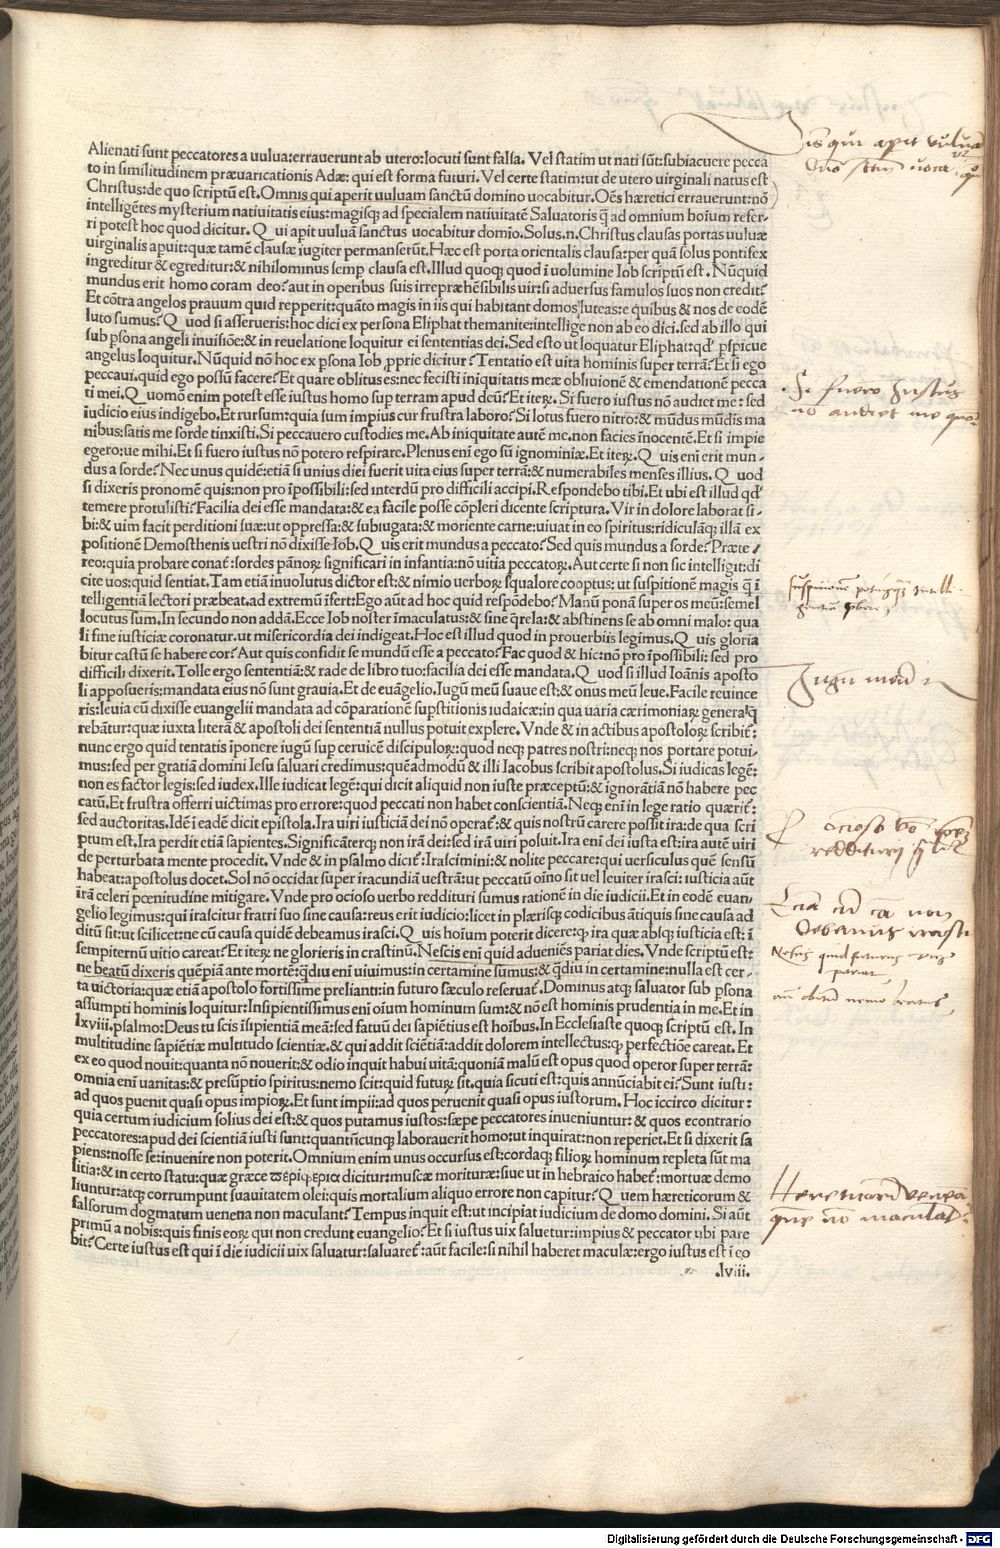 Alienati sunt peccatores a uulua:errauerunt ab utero:locuti sunt falsa. Vel statim ut nati sūt:subiacuere pecca
to in similitudinem præuaricationis Adæ: qui est forma futuri. Vel certe statim:ut de utero uirginali natus est
Christus:de quo scriptū est. Omnis qui aperit uuluam sanctū domino uocabitur. Oēs hæretici errauerunt:nō
intelligētes mysterium natiuitatis eius:magisq; ad specialem natiuitatē Saluatoris q̄ ad omnium hoīum refer-
ri potest hoc quod dicitur. Qui apit uuluā sanctus uocabitur domīo. Solus.n. Christus clausas portas uuluæ
uirginalis apuit:quæ tamē clausæ iugiter permanserūt. Hæc est porta orientalis clausa:per quā solus pontifex
ingreditur & egreditur:& nihilominus semp clausa est. Illud quoq; quod ī uolumine Iob scriptū est. Nūquid
mundus erit homo coram deo? aut in operibus suis irrepræhēsibilis uir:si aduersus famulos suos non credit?
Et cōtra angelos prauum quid repperit:quāto magis in iis qui habitant domos luteas:e quibus & nos de eodē
luto sumus? Quod si asserueris:hoc dici ex persona Eliphat themanite:intellige non ab eo dici. sed ab illo qui
sub psona angeli inuisiōe:& in reuelatione loquitur ei sententias dei. Sed esto ut loquatur Eliphat:qd' pspicue
angelus loquitur. Nūquid nō hoc ex psona Iob proprie dicitur? Tentatio est uita hominis super terrā? Et si ego
peccaui. quid ego possū facere? Et quare oblitus es: nec fecisti iniquitatis meæ obliuionē & emendationē pecca
ti mei. Quomō enim potest esse iustus homo sup terram apud deū? Et iteꝝ. Si fuero iustus nō audiet me: sed
iudicio eius indigebo. Et rursum:quia sum impius cur frustra laboro? Si lotus fuero nitro:& mūdus mūdis ma
nibus:satis me sorde tinxisti. Si peccauero custodies me. Ab iniquitate autē me. non facies īnocentē. Et si impie
egero:ue mihi. Et si fuero iustus nō potero respirare. Plenus enī ego sū ignominiæ. Et iteꝝ. Quis enī erit mun-
dus a sorde? Nec unus quidē:etiā si unius diei fuerit uita eius super terrā:& numerabiles menses illius. Quod
si dixeris pronomē quis:non pro īpossibili:sed interdū pro difficili accipi. Respondebo tibi. Et ubi est illud qd'
temere protulisti? Facilia dei esse mandata:& ea facile posse cōpleri dicente scriptura. Vir in dolore laborat si-
bi:& uim facit perditioni suæ:ut oppressa:& subiugata:& moriente carne:uiuat in eo spiritus:ridiculāq; illā ex
positionē Demosthenis uestri nō dixisse Iob. Quis erit mundus a peccato? Sed quis mundus a sorde? Præte
reo:quia probare conat̄:sordes pānoꝝ significari in infantia:nō uitia peccatoꝝ. Aut certe si non sic intelligit:di
cite uos:quid sentiat. Tam etiā inuolutus dictor est:& nimio uerboꝝ squalore cooptus: ut suspitionē magis q̄ ī
telligentiā lectori præbeat. ad extremū īfert:Ego aūt ad hoc quid respōdebo? Manū ponā super os meū:semel
locutus sum. In secundo non addā. Ecce Iob noster īmaculatus:& sine q̄rela:& abstinens se ab omni malo: qua
li fine iusticiæ coronatur. ut misericordia dei indigeat. Hoc est illud quod in prouerbiis legimus. Quis gloria
bitur castū se habere cor? Aut quis confidit se mundū esse a peccato? Fac quod & hic:nō pro īpossibili: sed pro
difficili dixerit. Tolle ergo sententiā:& rade de libro tuo:facilia dei esse mandata. Quod si illud Ioānis aposto
li apposueris:mandata eius nō sunt grauia. Et de euāgelio. Iugū meū suaue est:& onus meū leue. Facile reuince
ris:leuia eū dixisse euangelii mandata ad cōparationē supstitionis iudaicæ:in qua uaria cærimoniaꝝ genera q̄
rebātur:quæ iuxta literā & apostoli dei sententiā nullus potuit explere. Vnde & in actibus apostoloꝝ scribit̄:
nunc ergo quid tentatis īponere iugū sup ceruicē discipuloꝝ:quod neq; patres nostri:neq; nos portare potui-
mus:sed per gratiā domini Iesu saluari credimus:quēadmodū & illi Iacobus scribit apostolus. Si iudicas legē:
non es factor legis:sed iudex. Ille iudicat legē:qui dicit aliquid non iuste præceptū:& ignorātiā nō habere pec
catū. Et frustra offerri uictimas pro errore:quod peccati non habet conscientiā. Neq; enī in lege ratio quærit̄:
sed auctoritas. Idē ī eadē dicit epistola. Ira uiri iusticiā dei nō operat̄:& quis nostrū carere possit ira:de qua scri
ptum est. Ira perdit etiā sapientes. Significāterq; non irā dei:sed irā uiri poluit. Ira eni dei iusta est:ira autē uiri
de perturbata mente procedit. Vnde & in psalmo dicit̄: Irascimini:& nolite peccare:qui uersiculus quē sensū
habeat:apostolus docet. Sol nō occidat super iracundiā uestrā:ut peccatū oīno sit uel leuiter irasci: iusticia aūt
irā celeri pœnitudine mitigare. Vnde pro ocioso uerbo reddituri sumus rationē in die iudicii. Et in eodē euan-
gelio legimus:qui irascitur fratri suo sine causa:reus erit iudicio:licet in plærisq; codicibus ātiquis sine causa ad
ditū sit:ut scilicet:ne cū causa quidē debeamus irasci. Quis hoīum poterit dicere:q; ira quæ absq; iusticia est: ī
sempiternū uitio careat? Et iteꝝ ne glorieris in crastinū. Nescis enī quid adueniēs pariat dies. Vnde scriptū est:
ne beatū dixeris quēpiā ante mortē:q̄diu enī uiuimus:in certamine sumus:& q̄diu in certamine:nulla est cer-
ta uictoria:quæ etiā apostolo fortissime prelianti:in futuro sæculo reseruat̄. Dominus atq; saluator sub psona
assumpti hominis loquitur:Insipientissimus enī oīum hominum sum:& nō est hominis prudentia in me. Et in
lxviii. psalmo:Deus tu scis īsipientiā meā:sed fatuū dei sapiētius est hoībus. In Ecclesiaste quoq; scriptū est. In
multitudine sapiētiæ multitudo scientiæ.& qui addit sciētiā:addit dolorem intellectus:q; perfectiōe careat. Et
ex eo quod nouit:quanta nō nouerit:& odio inquit habui uitā:quoniā malū est opus quod operor super terrā:
omnia enī uanitas:& presūptio spiritus:nemo scit:quid futuꝝ sit. quia sicuti est:quis annūciabit ei? Sunt iusti:
ad quos puenit quasi opus impioꝝ. Et sunt impii:ad quos peruenit quasi opus iustorum. Hoc iccirco dicitur:
quia certum iudicium solius dei est:& quos putamus iustos:sæpe peccatores inueniuntur: & quos econtrario
peccatores:apud dei scientiā iusti sunt:quantūcunq; laborauerit homo:ut inquirat:non reperiet. Et si dixerit sa
piens:nosse se:inuenire non poterit. Omnium enim unus occursus est:cordaq; filioꝝ hominum repleta sūt ma
litia:& in certo statu:quæ græce περιφερια dicitur:muscæ morituræ:siue ut in hebraico habet̄:mortuæ demo
liuntur:atq; corrumpunt suauitatem olei:quis mortalium aliquo errore non capitur? Quem hæreticorum &
falsorum dogmatum uenena non maculant? Tempus inquit est:ut incipiat iudicium de domo domini. Si aūt
primū a nobis:quis finis eoꝝ qui non credunt euangelio? Et si iustus uix saluetur:impius & peccator ubi pare
bit? Certe iustus est qui ī die iudicii uix saluatur:saluaret̄:aūt facile:si nihil haberet maculæ:ergo iustus est ī eo
.lviii.
Si fuero Iustus
no audiet me
Iugū meū
ocioso
reddituri
Hereticorū venena
que nō maculat